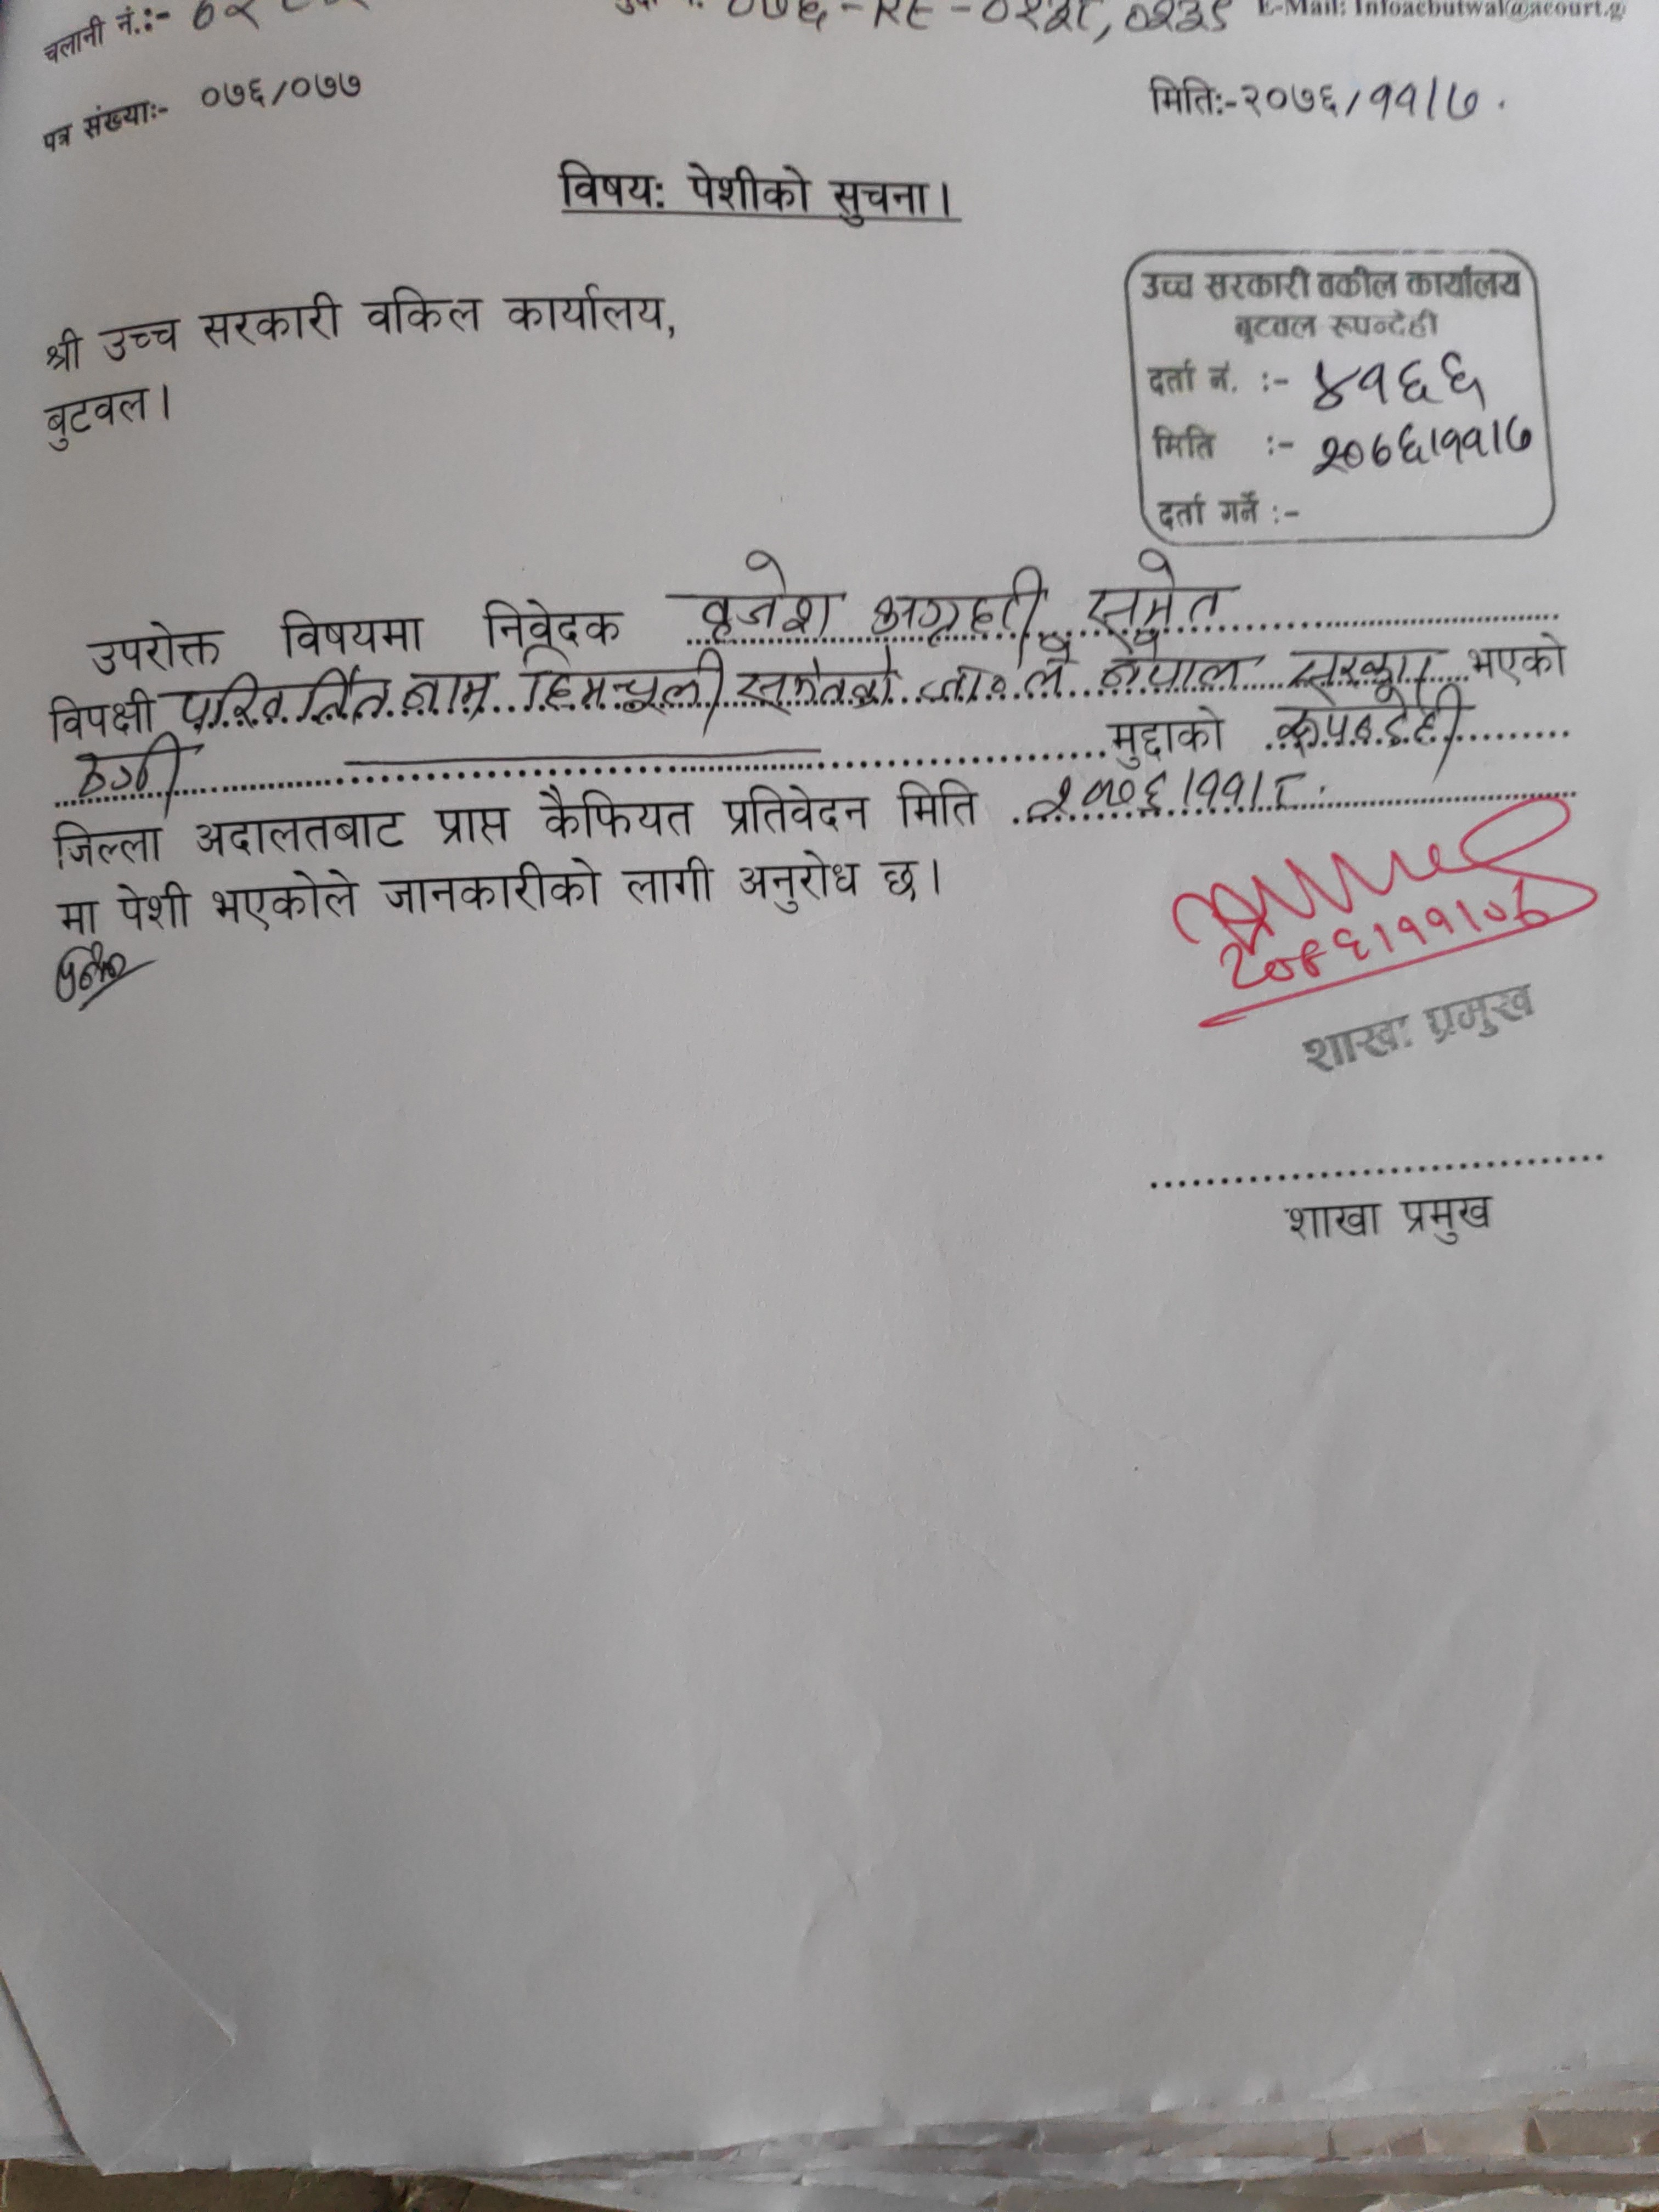 चलानी नं.:-
०७६-RE-०२२८, ०२३५ E-Mail: Infoacbutwal@acourt.g
पत्र संख्याः- ०७६/०७७
मितिः-२०७६/११/७.
विषय: पेशीको सुचना।
श्री उच्च सरकारी वकिल कार्यालय,
बुटवल।
उच्च सरकारी वकील कार्यालय
बुटवल रूपन्देही
दर्ता नं. :- ४१६६
मिति :- २०७६।११।७
दर्ता गर्ने :-
उपरोक्त विषयमा निवेदक वृजेश अग्रहरी समेत
विपक्षी परिवर्तित नाम हिमन्चुली समेतको जाहेरीले नेपाल सरकार भएको
ठगी मुद्दाको रूपन्देही
जिल्ला अदालतबाट प्राप्त कैफियत प्रतिवेदन मिति २०७६।११।८.
मा पेशी भएकोले जानकारीको लागी अनुरोध छ।
२०७६।११।०७
शाखा प्रमुख
शाखा प्रमुख